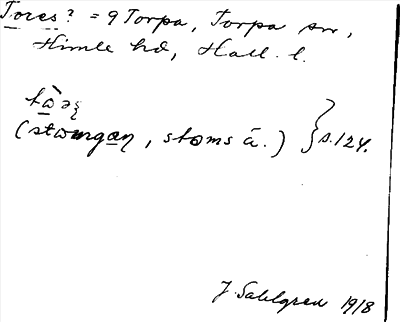 Tores? = 9 Torpa, Torpa sn,
Himle hd, Hall. l.
(stomgan, stoms å.) } s. 124.
J. Sahlgren 1918